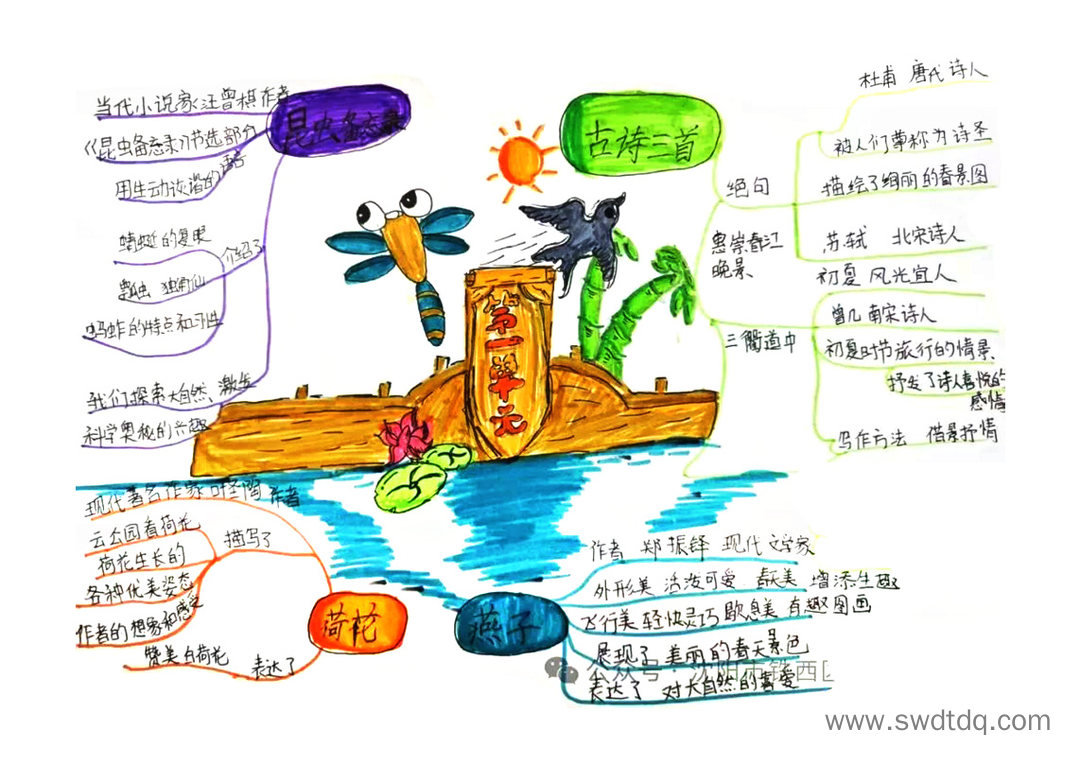 第一单元
古诗三首
绝句
杜甫 唐代诗人
被人们尊称为诗圣
描绘了绚丽的春景图
惠崇春江
晚景
苏轼 北宋诗人
初夏 风光宜人
三衢道中
曾几 南宋诗人
初夏时节旅行的情景
抒发了诗人喜悦的
感情
写作方法 借景抒情
燕子
作者 郑振铎 现代文学家
外形美 活泼可爱 春天美 增添生趣
飞行美 轻快灵巧 歇息美 有趣图画
展现了 美丽的春天景色
表达了 对大自然的喜爱
荷花
现代著名作家叶圣陶 作者
描写了
去公园看荷花
荷花生长的
各种优美姿态
作者的想象和感受
表达了
赞美白荷花
昆虫备忘录
当代小说家汪曾祺 作者
《昆虫备忘录》节选部分
用生动诙谐的语言
介绍了
蜻蜓的复眼
瓢虫 独角仙
蚂蚱的特点和习性
我们探索大自然、激发
科学奥秘的兴趣
公众号·沈阳市铁西区
www.swdtdq.com